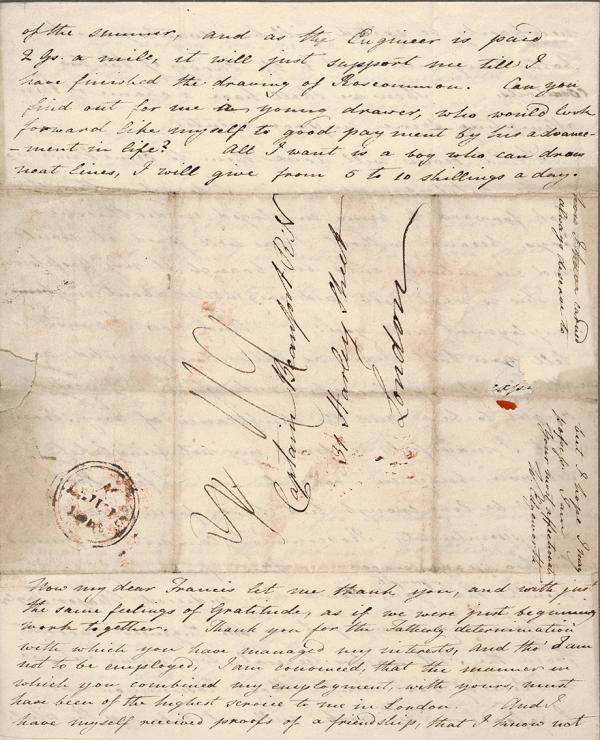 of the summer, and as the Engineer is paid
2 Gs. a mile, it will just support me till I
have finished the drawing of Roscommon. Can you
find out for me a young drawer, who would look
forward like myself to good payment by his advance-
-ment in life? All I want is a boy who can draw
neat lines, I will give from 5 to 10 shillings a day.
Captain Beaufort RN
Harley Street
London
always
to
but I hope I may
Your most affectionate
Now my dear Francis let me thank you, and with just
the same feelings of Gratitude, as if we were just beginning
work together. Thank you for the Fatherly determination
with which you have managed my interests, and tho' I am
not to be employed, I am convinced, that the manner in
which you combined my employment, with yours, must
have been of the highest service to me in London. And I
have myself received proofs of a friendship, that I know not